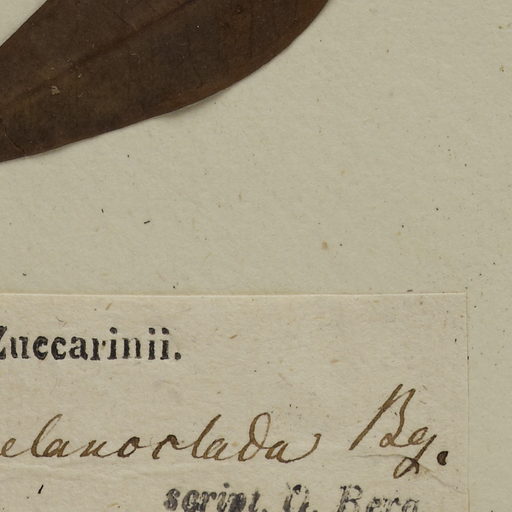 Zuccarinii.
elanoclada Bg.
script. O. Berg